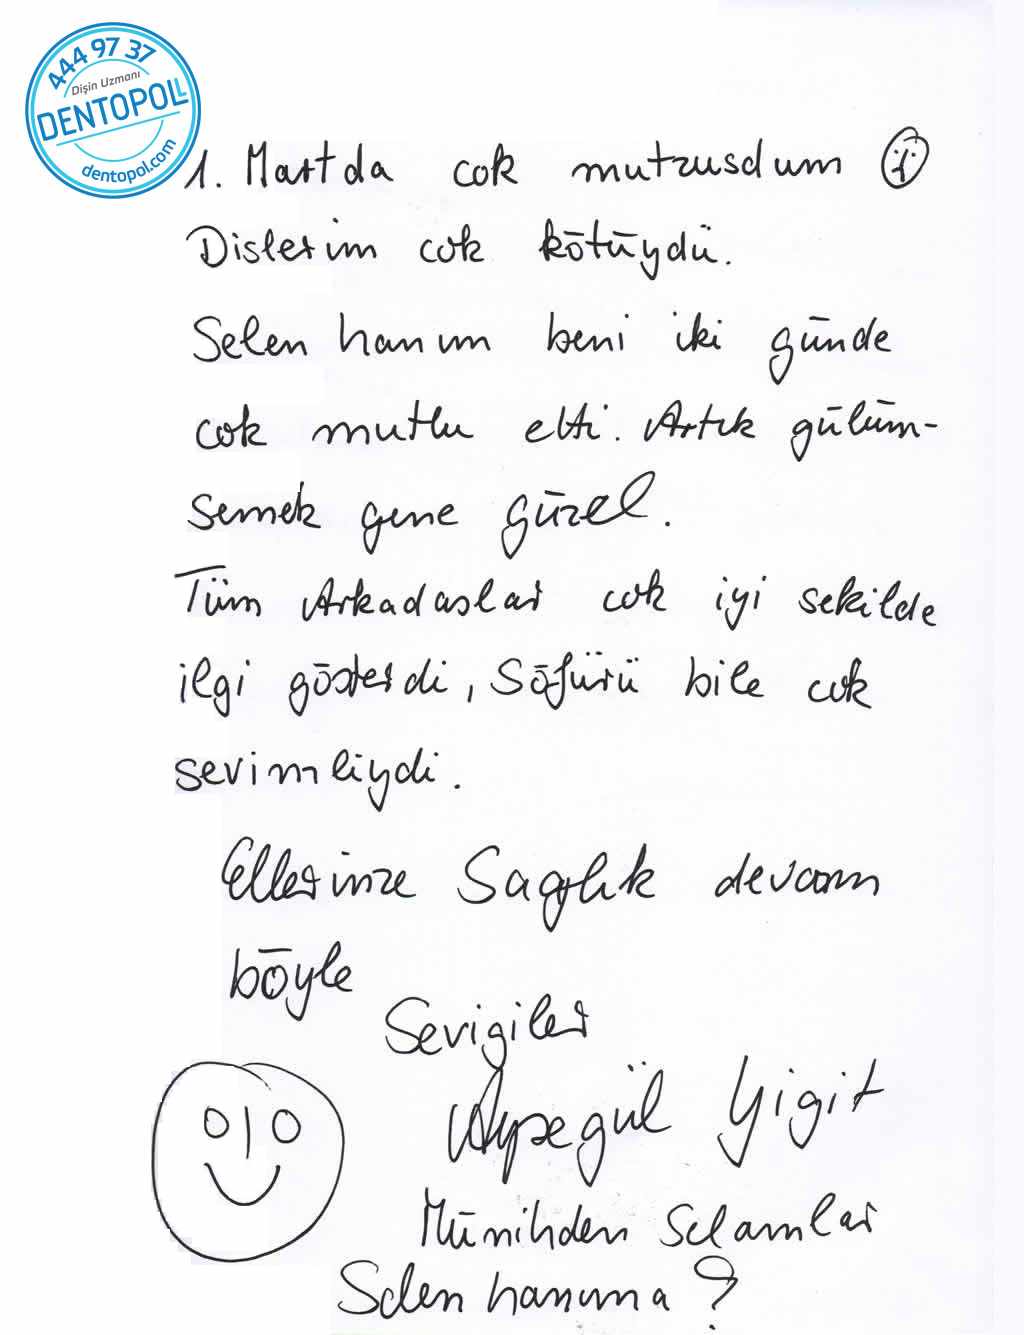 444 97 37
Dişin Uzmanı
DENTOPOLL
dentopol.com
1. Martda cok mutzusdum
Dislerim cok kötüydü.
Selen hanım beni iki günde
cok mutlu etti. Artık gülüm-
semek gene güzel.
Tüm Arkadaslar cok iyi sekilde
ilgi gösterdi, Söfürü bile cok
sevimliydi.
Ellerinze Saglık devam
böyle
Sevigiler
Aysegül Yigit
Münihden Selamlar
Selen hanıma